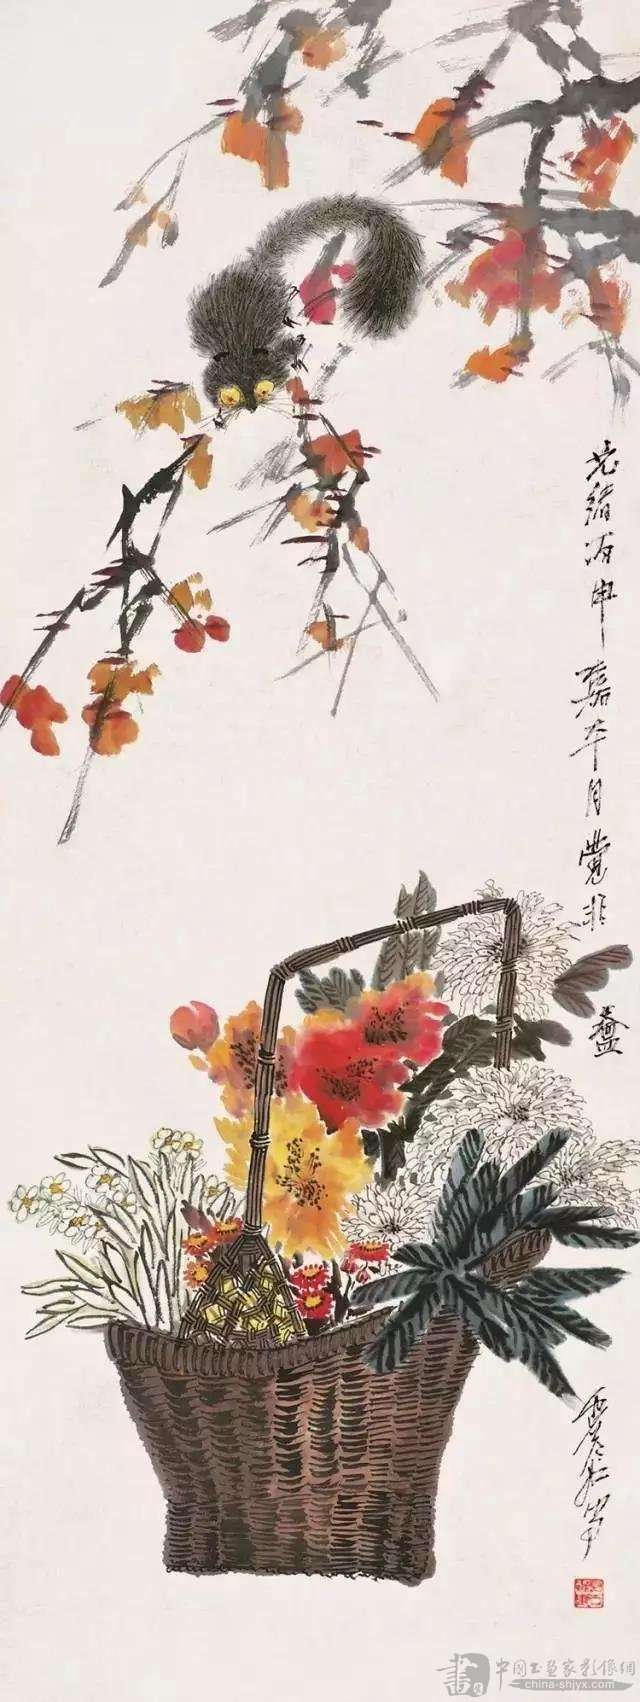 光緒丙申嘉平月覺非盦
書
中國书画家影像網
china-shjyx.com